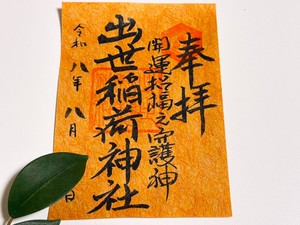 奉拝
開運招福之守護神
出世稲荷神社
令和八年八月
日